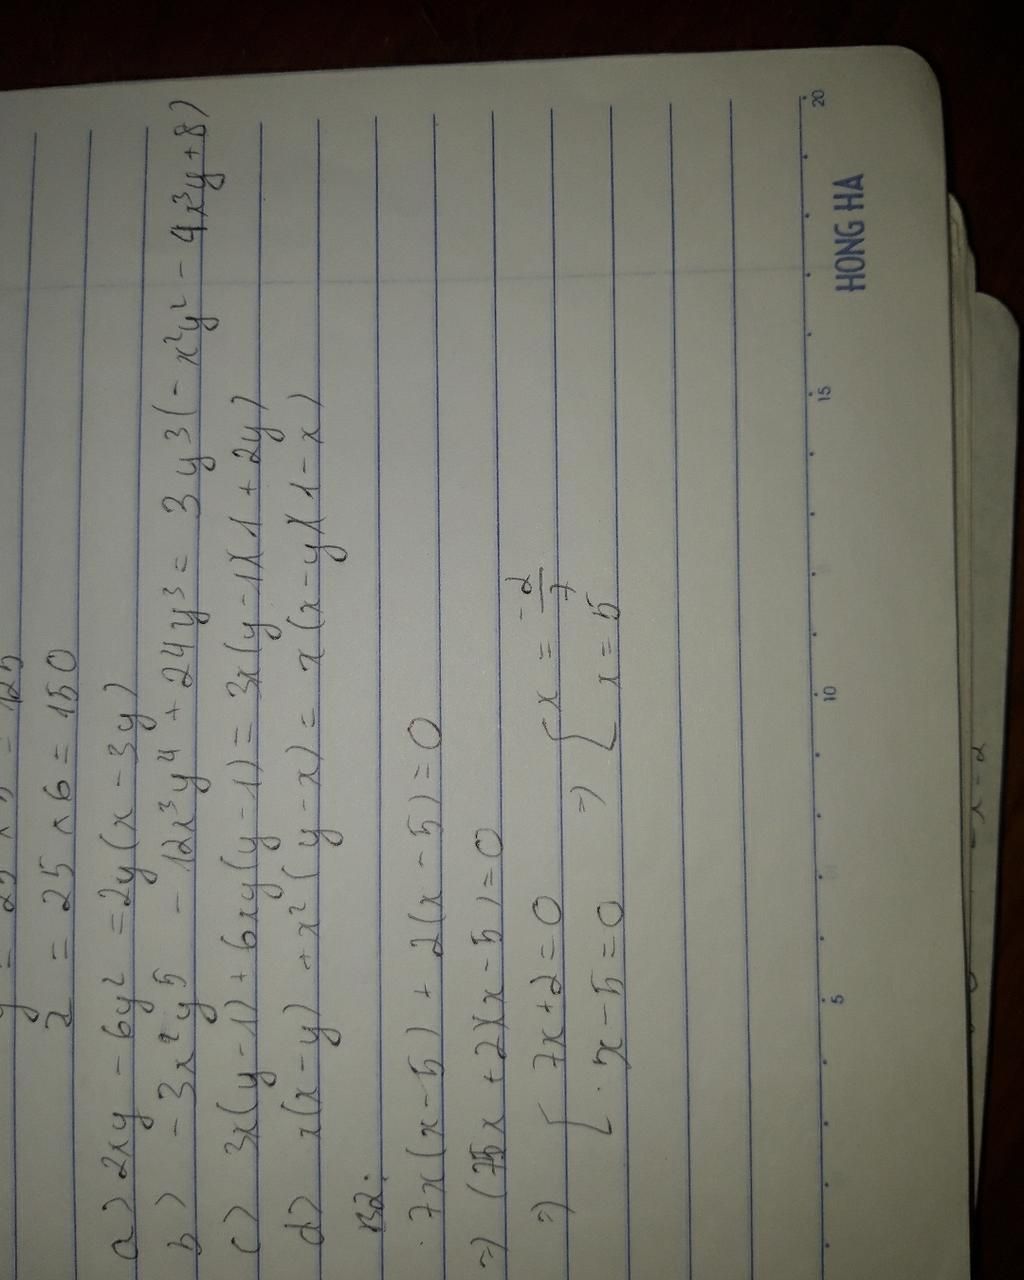 = 25 × 6 = 150
a> 2xy - 6y² = 2y(x - 3y)
b> - 3x²y⁵ - 12x³y⁴ + 24y³ = 3y3(-x²y² - 4x³y + 8)
c> 3x(y-1) + 6xy(y-1) = 3x(y-1)(1 + 2y)
d> x(x-y) + x²(y-x) = x(x-y)(1-x)
B2:
7x(x-5) + 2(x-5) = 0
=> (7x + 2)(x-5) = 0
=> [ 7x + 2 = 0 => [ x = -2/7
[ x - 5 = 0 [ x = 5
5 10 15 20
HONG HA